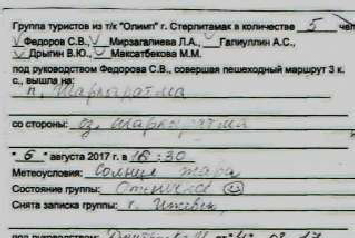 Группа туристов из т/к "Олимп" г. Стерлитамак в количестве 5 чел
Федоров С.В., Мирзагалиева Л.А., Галиуллин А.С.,
Дрытин В.Ю., Максатбекова М.М.
под руководством Федорова С.В., совершая пешеходный маршрут 3 к.
с., вышла на:
п.
со стороны: оз.
"6" августа 2017 г. в 16:30
Метеоусловия: солнце жара
Состояние группы: Отлично
Снята записка группы: г.
под руководством: